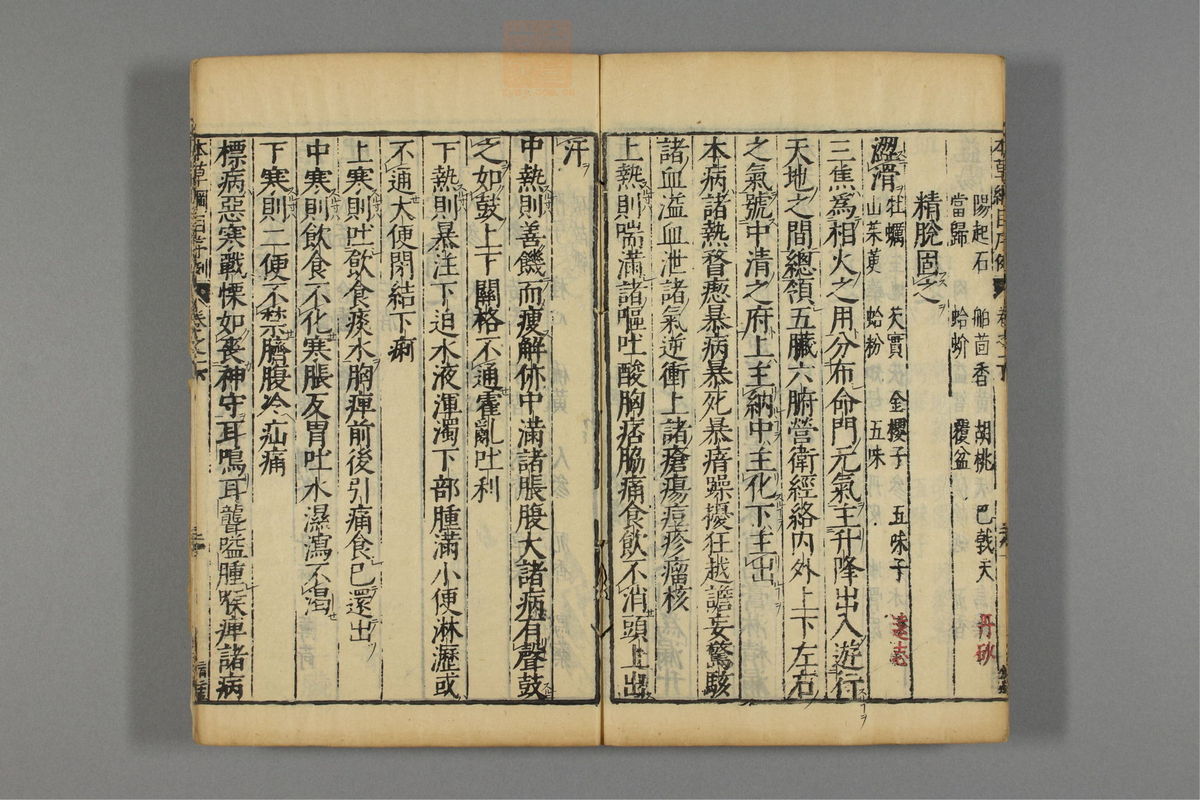 陽起石 舶茴香 胡桃 巴戟天 丹砂
當歸 蛤蚧 覆盆
精脫固之
澀滑 牡蠣 芡實 金櫻子 五味子 遠志
山茱萸 蛤粉 五味
三焦爲相火之用分布命門元氣主升降出入遊行
天地之間總領五臟六腑營衛經絡內外上下左右
之氣號中清之府上主納中主化下主出
本病諸熱瞀瘛暴病暴死暴瘖躁擾狂越譫妄驚駭
諸血溢血泄諸氣逆衝上諸瘡瘍痘疹瘤核
上熱則喘滿諸嘔吐酸胸痞脇痛食飲不消頭上出
汗
中熱則善饑而瘦解㑊中滿諸脹腹大諸病有聲鼓
之如鼓上下關格不通霍亂吐利
下熱則暴注下迫水液渾濁下部腫滿小便淋瀝或
不通大便閉結下痢
上寒則吐飲食痰水胸痺前後引痛食已還出
中寒則飲食不化寒脹反胃吐水濕瀉不渴
下寒則二便不禁臍腹冷疝痛
標病惡寒戰慄如喪神守耳鳴耳聾嗌腫喉痺諸病
本草綱目序例